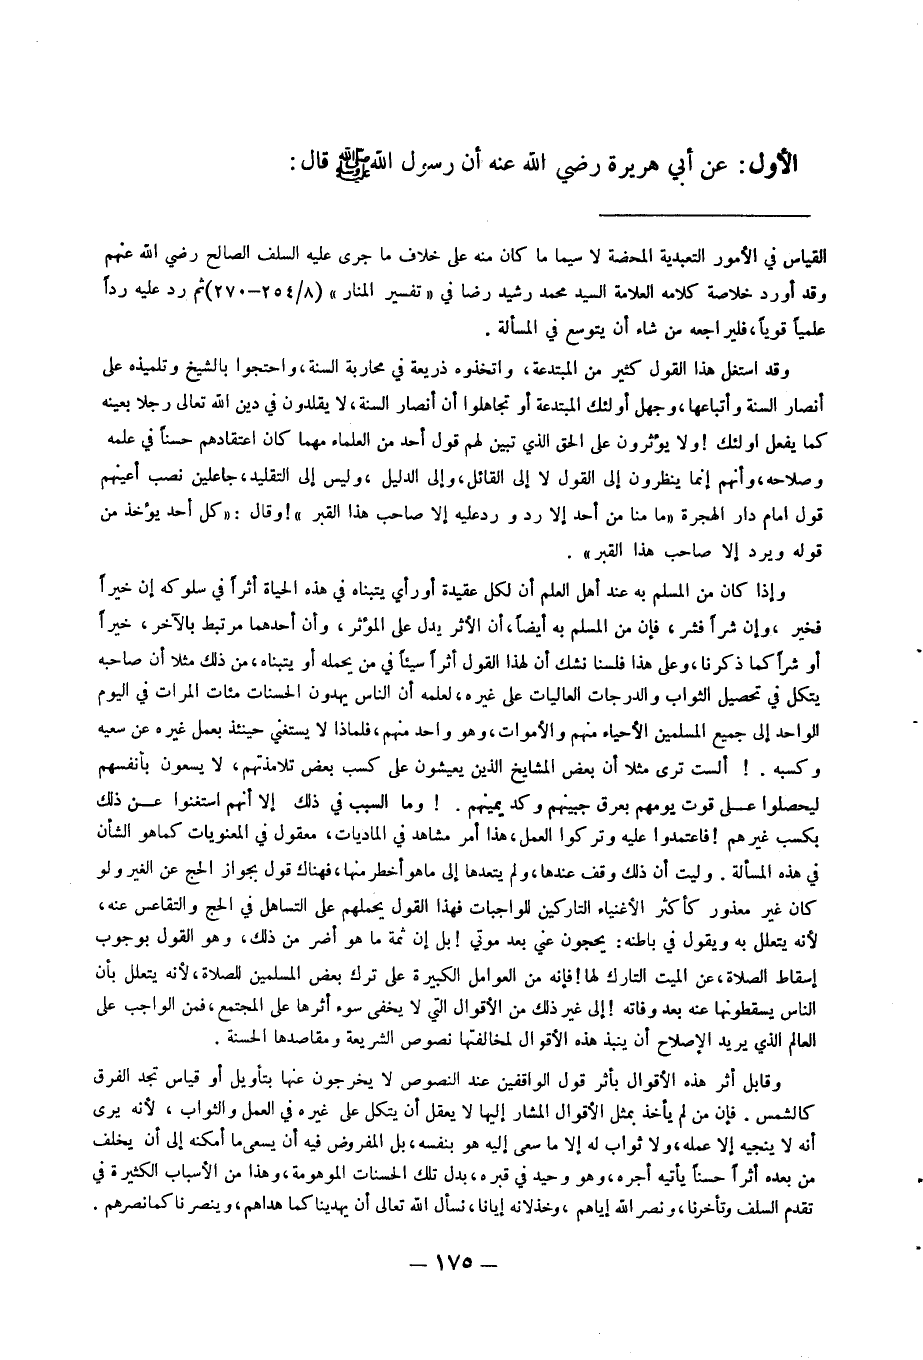 الأول: عن أبي هريرة رضي الله عنه أن رسول الله ﷺ قال:
القياس في الأمور التعبدية المحضة لا سيما ما كان منه على خلاف ما جرى عليه السلف الصالح رضي الله عنهم
وقد أورد خلاصة كلامه العلامة السيد محمد رشيد رضا في «تفسير المنار» (٨/٢٥٤-٢٧٠) ثم رد عليه رداً
علمياً قوياً، فليراجعه من شاء أن يتوسع في المسألة .
وقد استغل هذا القول كثير من المبتدعة، واتخذوه ذريعة في محاربة السنة، واحتجوا بالشيخ وتلميذه على
أنصار السنة وأتباعها، وجهل أولئك المبتدعة أو تجاهلوا أن أنصار السنة، لا يقلدون في دين الله تعالى رجلا بعينه
كما يفعل اولئك ! ولا يؤثرون على الحق الذي تبين لهم قول أحد من العلماء مهما كان اعتقادهم حسناً في علمه
وصلاحه، وأنهم إنما ينظرون إلى القول لا إلى القائل، وإلى الدليل ، وليس إلى التقليد، جاعلين نصب أعينهم
قول امام دار الهجرة «ما منا من أحد إلا رد و رد عليه إلا صاحب هذا القبر »! وقال :«كل أحد يؤخذ من
قوله ويرد إلا صاحب هذا القبر» .
وإذا كان من المسلم به عند أهل العلم أن لكل عقيدة أو رأي يتبناه في هذه الحياة أثراً في سلوكه إن خيراً
فخير ، وإن شراً فشر ، فإن من المسلم به أيضاً، أن الأثر يدل على المؤثر ، وأن أحدهما مرتبط بالآخر ، خيراً
أو شراً كما ذكرنا، وعلى هذا فلسنا نشك أن لهذا القول أثراً سيئاً في من يحمله أو يتبناه، من ذلك مثلا أن صاحبه
يتكل في تحصيل الثواب والدرجات العاليات على غيره، لعلمه أن الناس يهدون الحسنات مئات المرات في اليوم
الواحد إلى جميع المسلمين الأحياء منهم والأموات، وهو واحد منهم، فلماذا لا يستغني حينئذ بعمل غيره عن سعيه
وكسبه . ! ألست ترى مثلا أن بعض المشايخ الذين يعيشون على كسب بعض تلامذتهم، لا يسعون بأنفسهم
ليحصلوا عـلى قوت يومهم بعرق جبينهم وكد يمينهم . ! وما السبب في ذلك إلا أنهم استغنوا عـن ذلك
بكسب غيرهم ! فاعتمدوا عليه وتركوا العمل، هذا أمر مشاهد في الماديات، معقول في المعنويات كما هو الشأن
في هذه المسألة . وليت أن ذلك وقف عندها، ولم يتعدها إلى ما هو أخطر منها، فهناك قول بجواز الحج عن الغير ولو
كان غير معذور كأكثر الأغنياء التاركين للواجبات فهذا القول يحملهم على التساهل في الحج والتقاعس عنه،
لأنه يتعلل به ويقول في باطنه: يحجون عني بعد موتي ! بل إن ثمة ما هو أضر من ذلك، وهو القول بوجوب
إسقاط الصلاة، عن الميت التارك لها! فإنه من العوامل الكبيرة على ترك بعض المسلمين للصلاة، لأنه يتعلل بأن
الناس يسقطونها عنه بعد وفاته ! إلى غير ذلك من الأقوال التي لا يخفى سوء أثرها على المجتمع، فمن الواجب على
العالم الذي يريد الإصلاح أن ينبذ هذه الأقوال لمخالفتها نصوص الشريعة ومقاصدها الحسنة .
وقابل أثر هذه الأقوال بأثر قول الواقفين عند النصوص لا يخرجون عنها بتأويل أو قياس تجد الفرق
كالشمس . فإن من لم يأخذ بمثل الأقوال المشار إليها لا يعقل أن يتكل على غيره في العمل والثواب ، لأنه يرى
أنه لا ينجيه إلا عمله، ولا ثواب له إلا ما سعى إليه هو بنفسه، بل المفروض فيه أن يسعى ما أمكنه إلى أن يخلف
من بعده أثراً حسناً يأتيه أجره، وهو وحيد في قبره، بدل تلك الحسنات الموهومة، وهذا من الأسباب الكثيرة في
تقدم السلف وتأخرنا، ونصر الله إياهم ، وخذلانه إيانا، نسأل الله تعالى أن يهدينا كما هداهم، وينصرنا كما نصرهم .
— ١٧٥ —